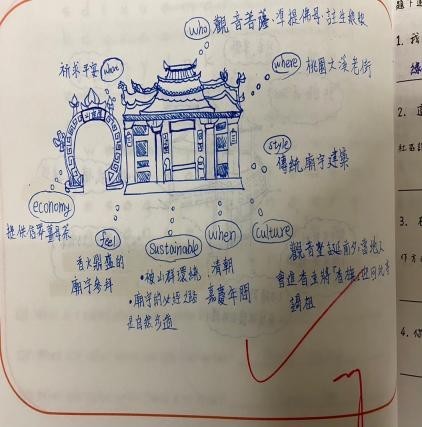 who 觀音菩薩、準提佛母、註生娘娘
祈求平安 what
where 桃園大溪老街
style
傳統廟宇建築
economy
提供信眾
feel
香火鼎盛的
廟宇參拜
sustainable
•被山群環繞
•廟宇的必經之路
是自然步道
when
清朝
嘉慶年間
culture
觀音聖誕前夕,當地人
會進香
謁祖
1. 我
2.
社區
3.
4. 你